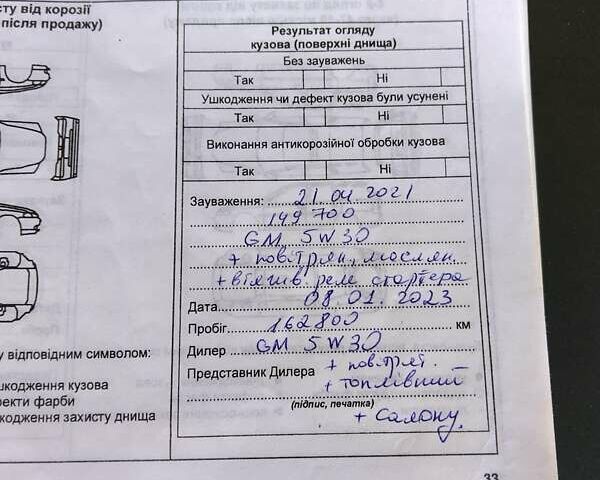 сту від корозії
після продажу)
Результат огляду
кузова (поверхні днища)
Без зауважень
Так Ні
Ушкодження чи дефект кузова були усунені
Так Ні
Виконання антикорозійної обробки кузова
Так Ні
Зауваження: 21 04 2021
149 700
GM 5W30
+ повітрян, маслян.
+ втягив. реле стартера
Дата 08.01.2023
Пробіг 162800 км
Дилер GM 5W30
Представник Дилера + повітрят.
+ топлівний
(підпис, печатка)
+ салону.
у відповідним символом:
шкодження кузова
фекти фарби
кодження захисту днища
33